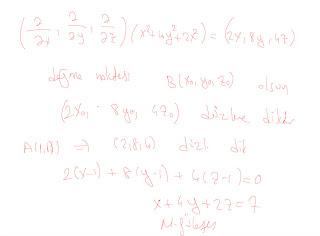 (∂/∂x, ∂/∂y, ∂/∂z) (x²+4y²+2z²) = (2x, 8y, 4z)
değme noktası B(x₀, y₀, z₀) olsun
(2x₀, 8y₀, 4z₀) düzleme diktir
A(1,1,1) ⇒ (2,8,4) düzl. dik
2(x-1) + 8(y-1) + 4(z-1) = 0
x + 4y + 2z = 7